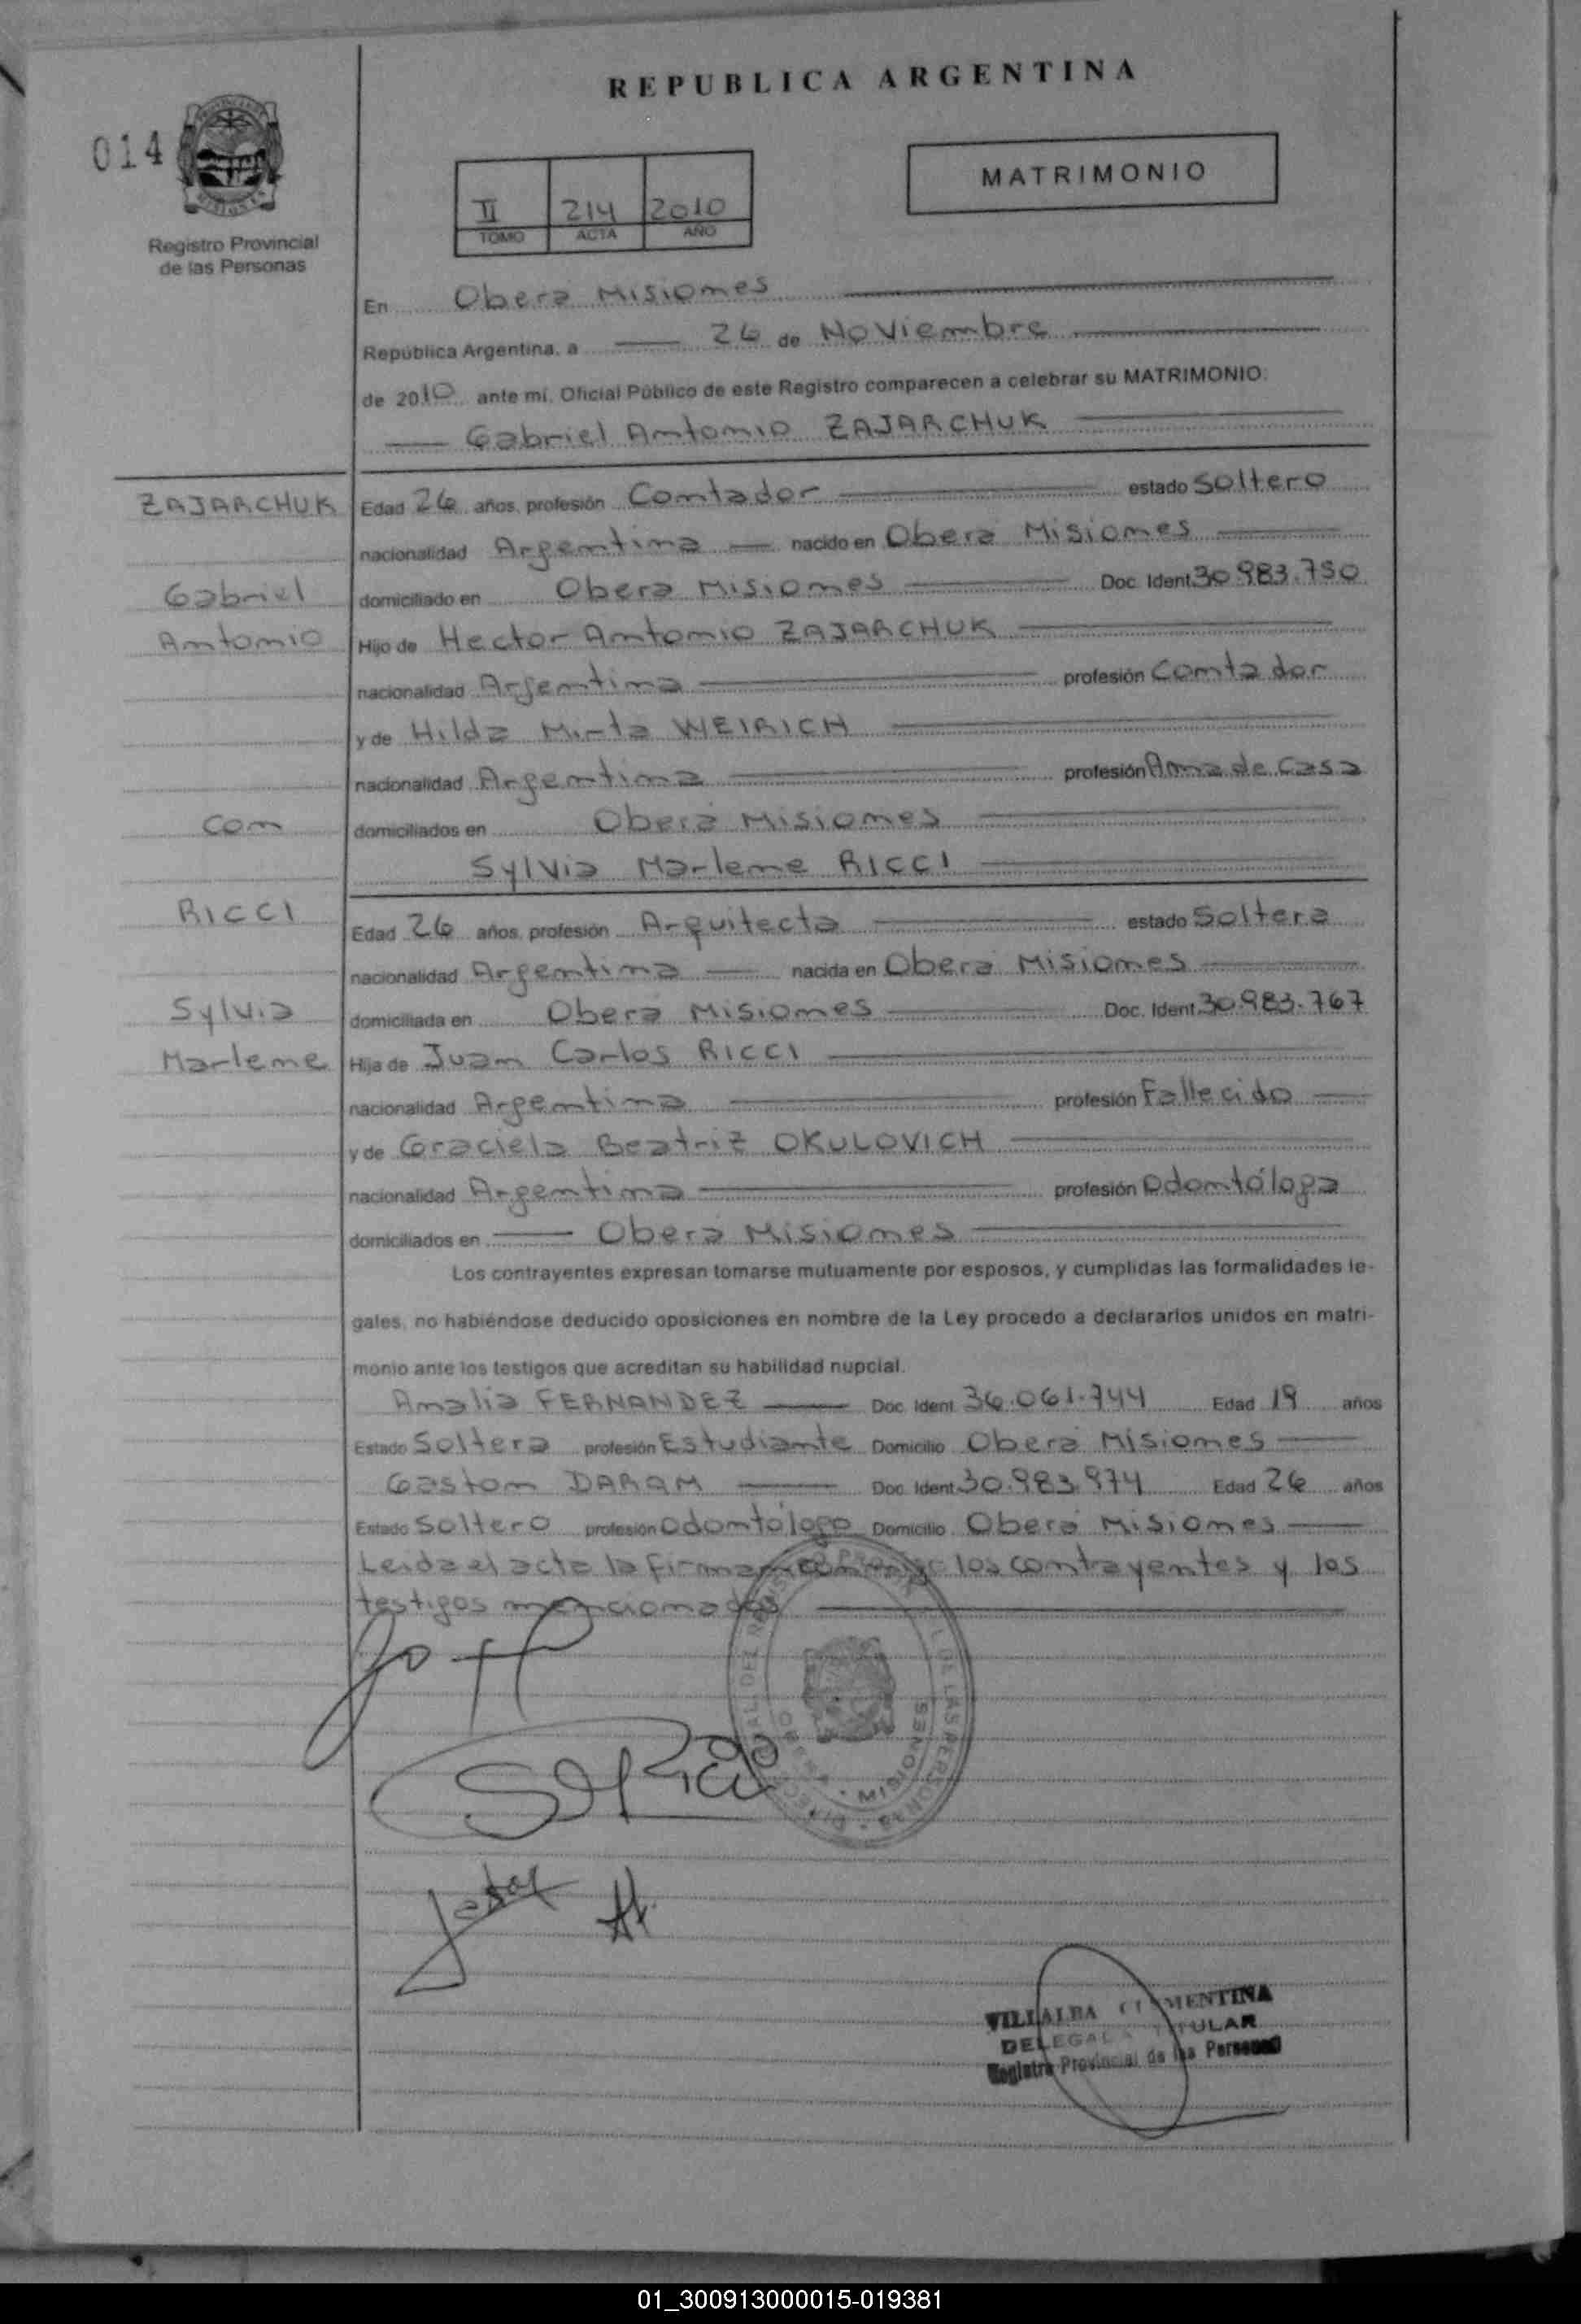 REPUBLICA ARGENTINA
014
MATRIMONIO
II 214 2010
TOMO ACTA AÑO
Registro Provincial
de las Personas
En Obera Misiones
República Argentina, a 26 de Noviembre
de 2010 ante mí, Oficial Público de este Registro comparecen a celebrar su MATRIMONIO:
Gabriel Antonio ZAJARCHUK
ZAJARCHUK
Edad 26 años, profesión Contador estado Soltero
nacionalidad Argentina nacido en Oberá Misiones
Gabriel
domiciliado en Obera Misiones Doc. Ident. 30.983.750
Antonio
Hijo de Hector Antonio ZAJARCHUK
nacionalidad Argentina profesión Contador
y de Hilda Mirta WEIRICH
nacionalidad Argentina profesión Ama de Casa
con
domiciliados en Oberá Misiones
Sylvia Marlene RICCI
RICCI
Edad 26 años, profesión Arquitecta estado Soltera
nacionalidad Argentina nacida en Oberá Misiones
Sylvia
domiciliada en Oberá Misiones Doc. Ident. 30.983.767
Marlene
Hija de Juan Carlos RICCI
nacionalidad Argentina profesión Fallecido
y de Graciela Beatriz OKULOVICH
nacionalidad Argentina profesión Odontóloga
domiciliados en Oberá Misiones
Los contrayentes expresan tomarse mutuamente por esposos, y cumplidas las formalidades le-
gales, no habiéndose deducido oposiciones en nombre de la Ley procedo a declararlos unidos en matri-
monio ante los testigos que acreditan su habilidad nupcial.
Analia FERNANDEZ Doc. Ident. 36.061.744 Edad 19 años
Estado Soltera profesión Estudiante Domicilio Oberá Misiones
Gaston DARAM Doc. Ident. 30.983.974 Edad 26 años
Estado Soltero profesión Odontólogo Domicilio Oberá Misiones
Leida el acta la firman conmigo los contrayentes y los
testigos mencionados
MISIONES
VILLALBA CLEMENTINA
DELEGADA TITULAR
Registro Provincial de las Personas
01_300913000015-019381